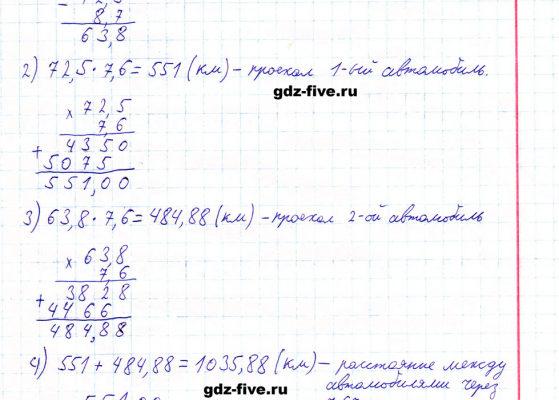 8,7
63,8
2) 72,5 · 7,6 = 551 (км) – проехал 1-ый автомобиль.
gdz-five.ru
× 72,5
7,6
+ 4350
5075
551,00
3) 63,8 · 7,6 = 484,88 (км) – проехал 2-ой автомобиль
× 63,8
7,6
+ 3828
4466
484,88
4) 551 + 484,88 = 1035,88 (км) – расстояние между
автомобилями через
gdz-five.ru